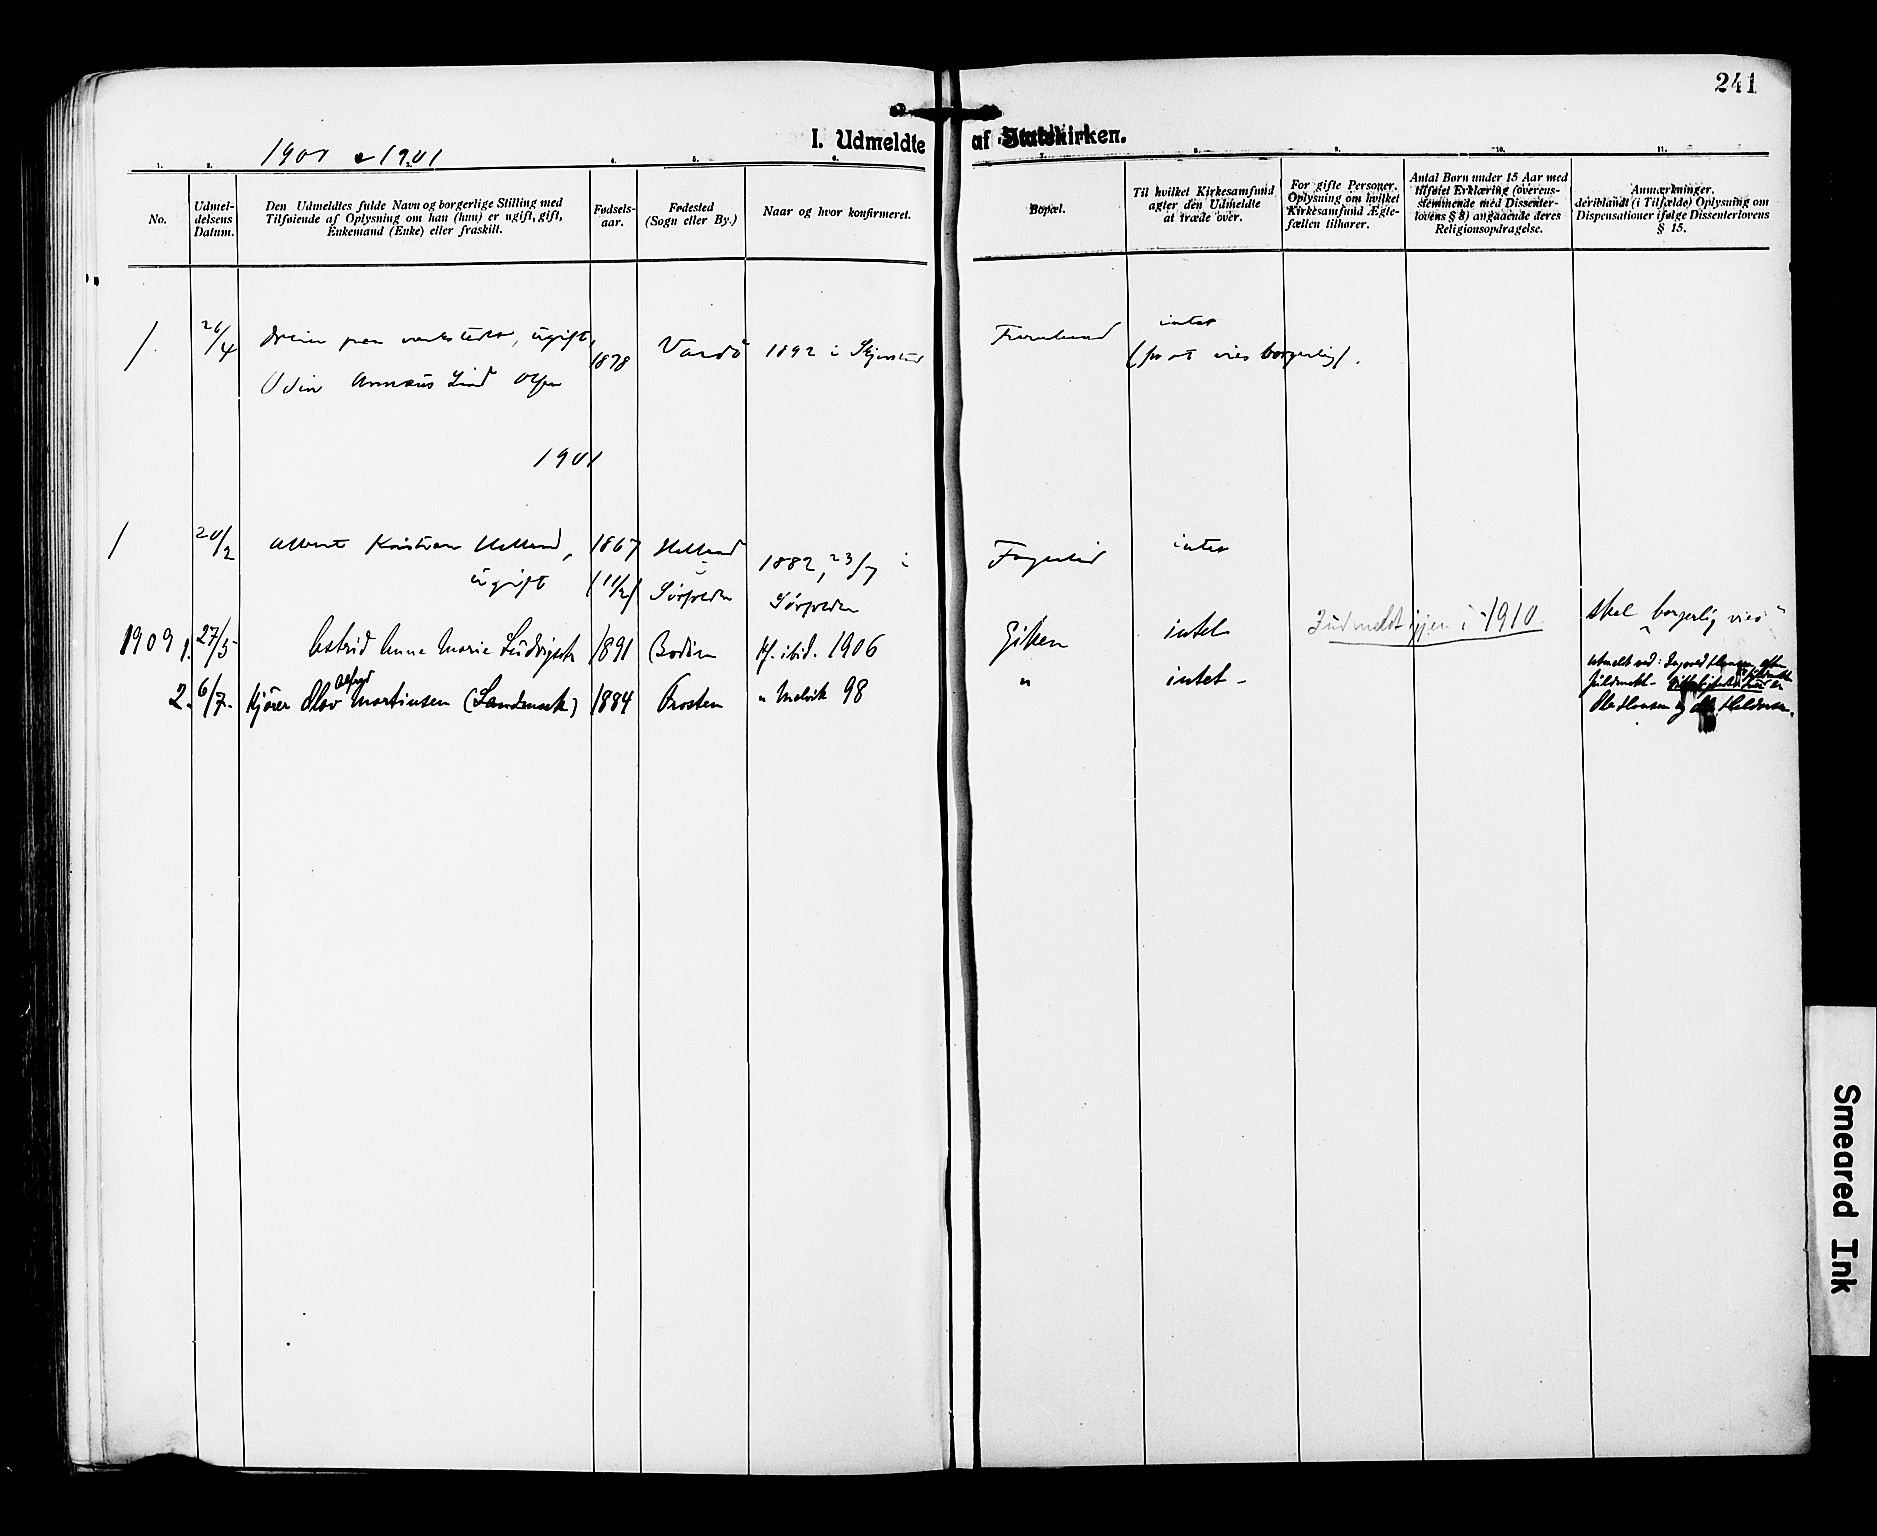 241
1900 & 1901
I. Udmeldte af Statskirken.
1.
2.
3.
4.
5.
6.
7.
8.
9.
10.
11.
No.
Udmel-
delsens
Datum.
Den Udmeldtes fulde Navn og borgerlige Stilling med
Tilføiende af Oplysning om han (hun) er ugift, gift,
Enkemand (Enke) eller fraskilt.
Fødsels-
aar.
Fødested
(Sogn eller By.)
Naar og hvor konfirmeret.
Bopæl.
Til hvilket Kirkesamfund
agter den Udmeldte
at træde over.
For gifte Personer.
Oplysning om hvilket
Kirkesamfund Ægte-
fællen tilhører.
Antal Børn under 15 Aar med
tilføiet Erklæring (overens-
stemmende med Dissenter-
lovens § 8) angaaende deres
Religionsopdragelse.
Anmærkninger.
deriblandt (i Tilfælde) Oplysning om
Dispensationer ifølge Dissenterlovens
§ 15.
1. 26/4 ugift,
Odin Lind Olsen
1878 Vardö 1892 i Skjerstad
intet
(for at vies borgerlig).
1901
1 20/2 Albert Kristian Helland,
ugift
1867
(11/2)
Helland
i
Sörfolden
1882, 23/7 i
Sörfolden
intet
1909 1. 27/5 Astrid Anna Marie Ludvigsen 1891 Bodin Kf. ibid. 1906 Giken intet Indmeldt igjen i 1910 skal borgerlig vies
2. 6/7. Kjører Olav Alfred Martinsen (Landmark) 1884 Frosten " Malvik 98 " intet -
Ole Hansen og Halvorsen.
Smeared Ink